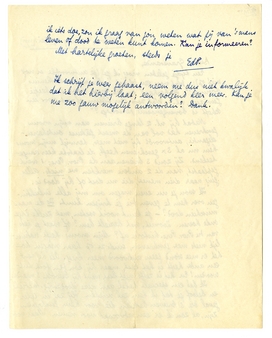 ik iets doe, zou ik graag van jou weten wat jij van 's mans
leven of dood te weten kunt komen. Kan je informeeren?
Met hartelijke groeten, steeds je
EdP.
Ik schrijf je weer gehaast, neem me dus niet kwalijk
dat ik het hierbij laat; een volgend keer meer. Kan je
me zoo gauw mogelijk antwoorden? Dank.